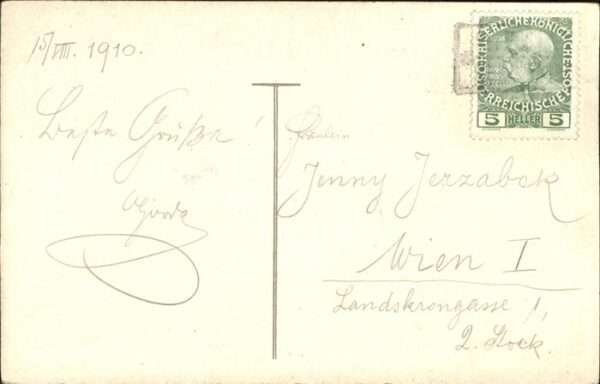 15/VIII. 1910.
Beste Grüße!
KAISERLICHE KÖNIGLICHE ÖSTERREICHISCHE POST
5 HELLER 5
Fräulein
Jenny Jerzabek
Wien I
Landskrongasse 1,
2. Stock.